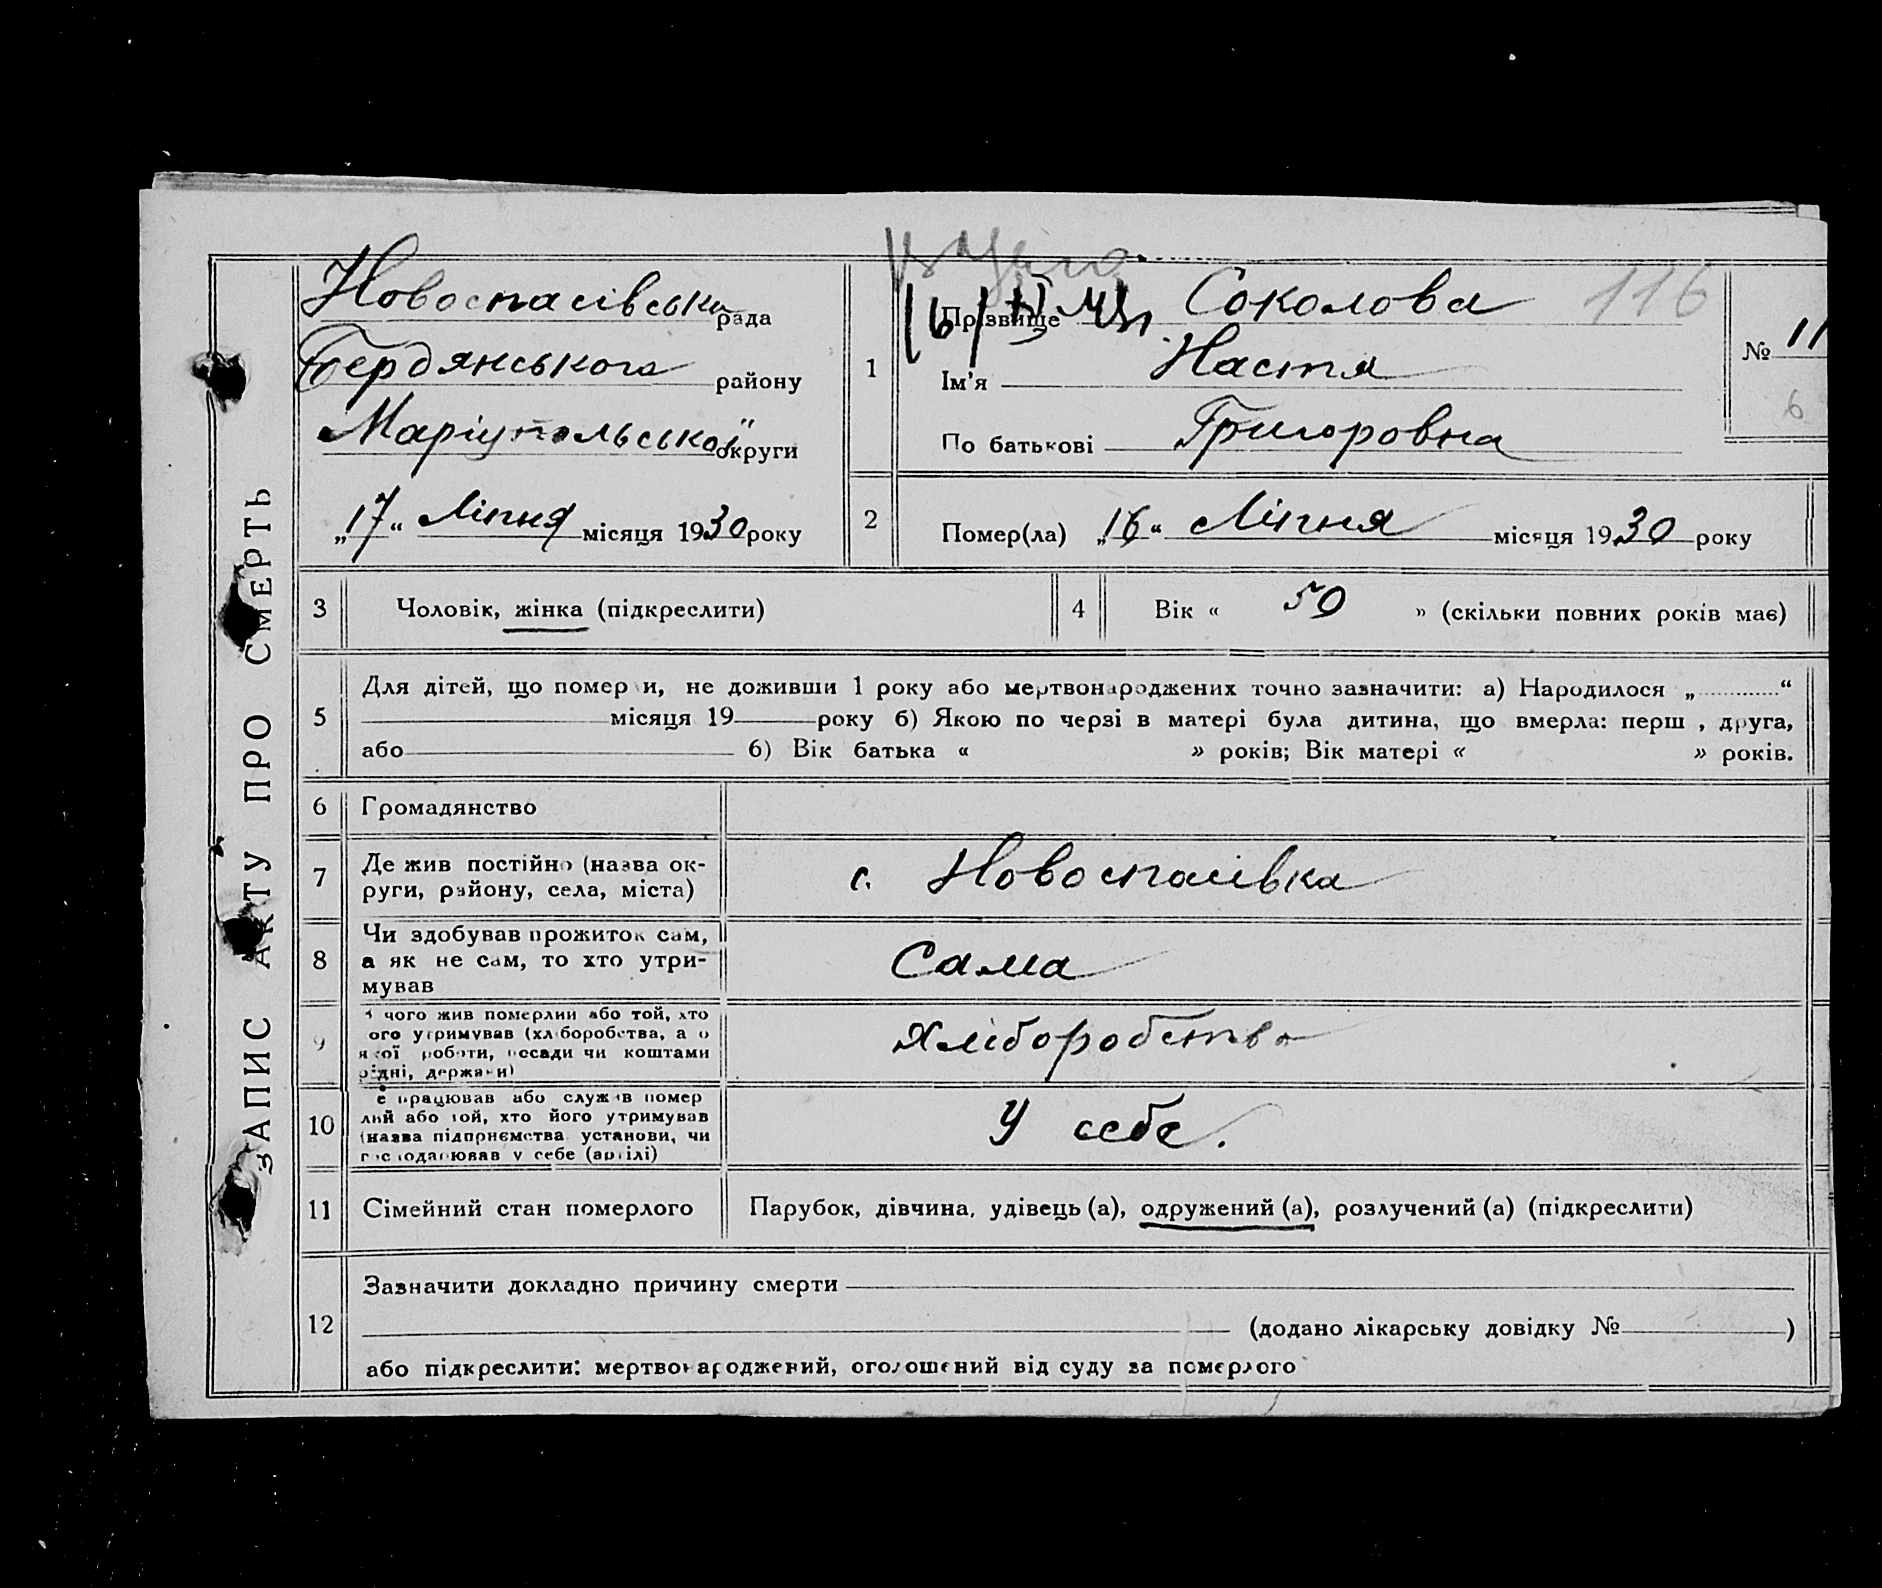 ЗАПИС АКТУ ПРО СМЕРТЬ
Новоспасівська рада
Бердянського району
Маріупольської округи
„17“ Ліпня місяця 1930 року
116
1
Прізвище Соколова
Ім'я Настя
По батькові Григоровна
№ 11
6
2
Помер(ла) „16“ Ліпня місяця 1930 року
3 Чоловік, жінка (підкреслити)
4 Вік « 50 » (скільки повних років має)
5
Для дітей, що помер и, не доживши 1 року або мертвонароджених точно зазначити: а) Народилося „ “
місяця 19 року б) Якою по черзі в матері була дитина, що вмерла: перш , друга,
або б) Вік батька « » років; Вік матері « » років.
6 Громадянство
7 Де жив постійно (назва ок-
руги, району, села, міста)
с. Новоспасівка
8 Чи здобував прожиток сам,
а як не сам, то хто утри-
мував
Сама
9 чого жив померлий або той, хто
ого утримував (хліборобства, а о
якої роботи, посади чи коштами
рідні, держави)
Хліборобство
10 е працював або служив помер
лий або той, хто його утримував
(назва підприємства установи, чи
господарював у себе (артілі)
У себе.
11 Сімейний стан померлого
Парубок, дівчина, удівець (а), одружений (а), розлучений (а) (підкреслити)
12
Зазначити докладно причину смерти
(додано лікарську довідку № )
або підкреслити: мертвонароджений, оголошений від суду за померлого